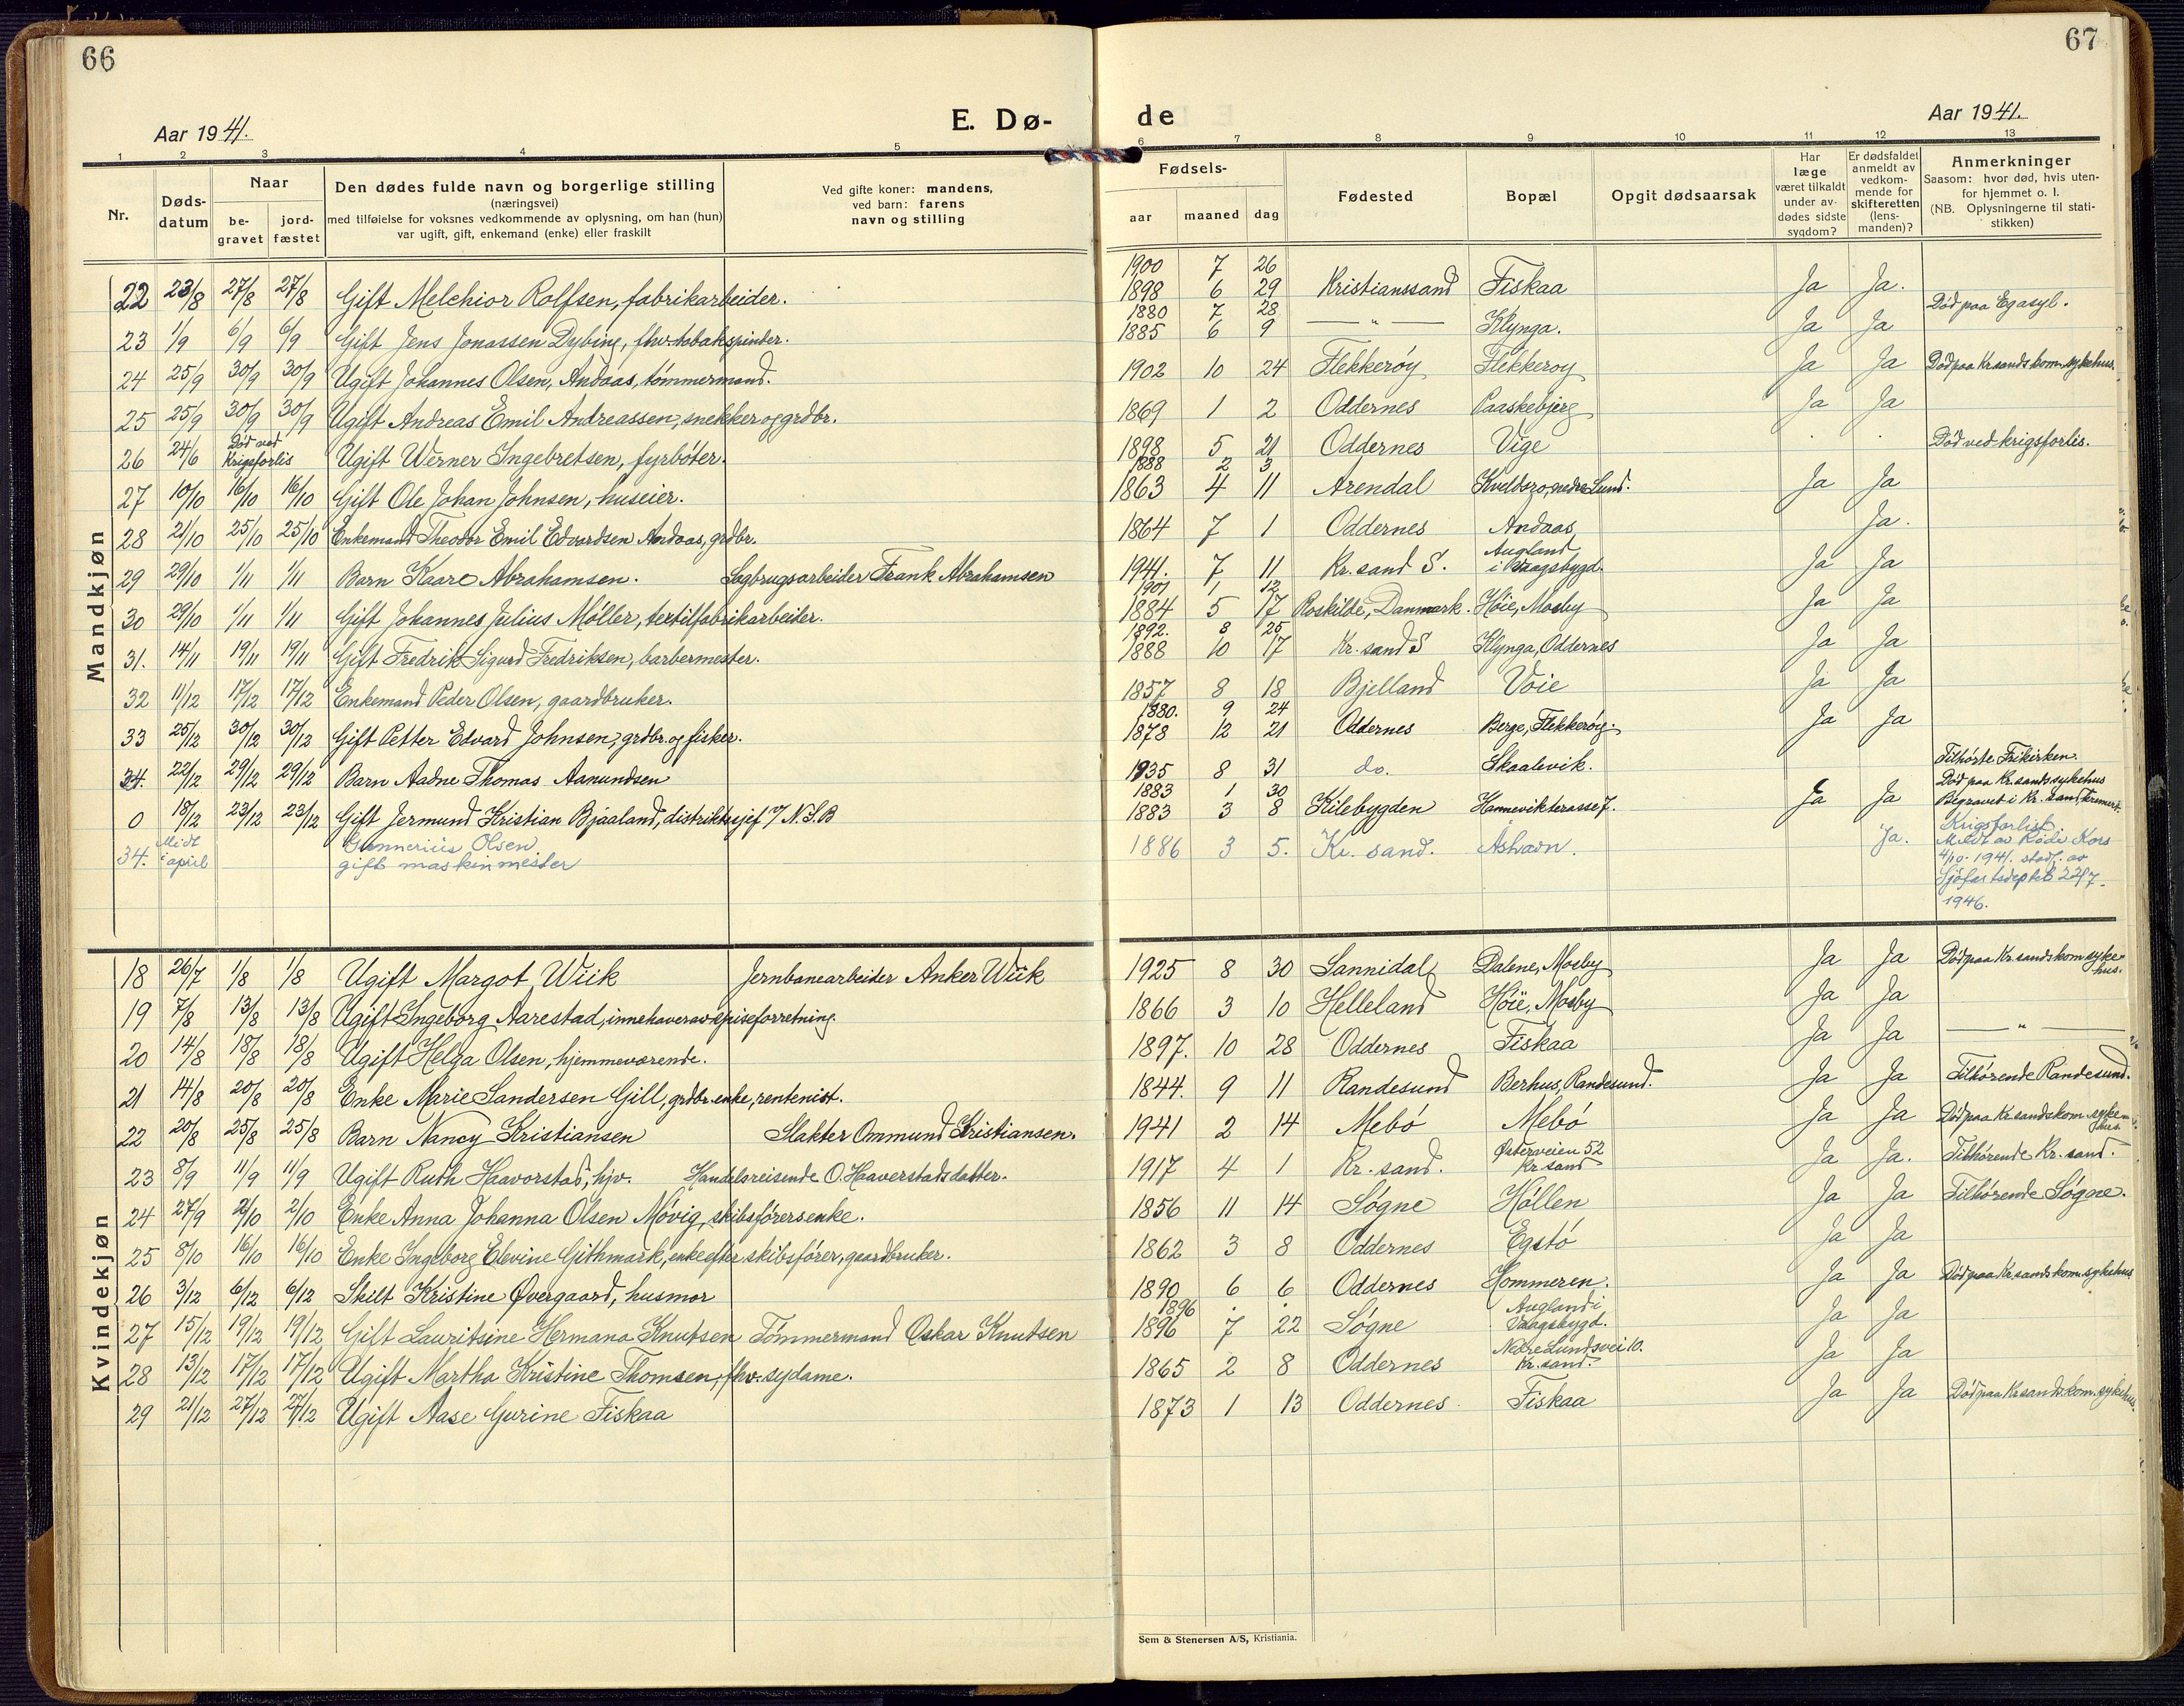 66
Aar 1941.
E. Dø-
1 2 3 4 5
Nr.
Døds-datum
Naar
be-gravet
jord-fæstet
Den dødes fulde navn og borgerlige stilling
(næringsvei)
med tilføielse for voksnes vedkommende av oplysning, om han (hun)
var ugift, gift, enkemand (enke) eller fraskilt
Ved gifte koner: mandens,
ved barn: farens
navn og stilling
Mandkjøn
22 23/8 27/8 27/8 Gift Melchior Rolfsen, fabrikarbeider.
23 1/9 6/9 6/9 Gift Jens Jonassen Dybing, fhv. tobakspinder.
24 25/9 30/9 30/9 Ugift Johannes Olsen, Andaas, tømmermand.
25 25/9 30/9 30/9 Ugift Andreas Emil Andreassen, snekker og grdbr.
26 24/6 Død ved Krigsforlis Ugift Werner Ingebretsen, fyrbøter.
27 10/10 16/10 16/10 Gift Ole Johan Johnsen, huseier.
28 21/10 25/10 25/10 Enkemand Theodor Emil Edvardsen Andaas, grdbr.
29 29/10 1/11 1/11 Barn Kaare Abrahamsen. Sagbrugsarbeider Frank Abrahamsen
30 29/10 1/11 1/11 Gift Johannes Julius Møller, textilfabrikarbeider.
31. 14/11 19/11 19/11 Gift Fredrik Sigurd Fredriksen, barbermester.
32 11/12 17/12 17/12 Enkemand Peder Olsen, gaardbruker.
33 25/12 30/12 30/12 Gift Petter Edvard Johnsen, grdbr. og fisker.
34. 22/12 29/12 29/12 Barn Aadne Thomas Aanundsen
0 18/12 23/12 23/12 Gift Jermund Kristian Bjaaland, distriktssjef v/ N.S.B
34. Midt i april Gunnerius Olsen
gift maskinmester
Kvindekjøn
18 26/7 1/8 1/8 Ugift Margot Wiik Jernbanearbeider Anker Wiik
19 7/8 13/8 13/8 Ugift Ingeborg Aarestad, innehaver av episeforretning.
20 14/8 18/8 18/8 Ugift Helga Olsen, hjemmeværende.
21 14/8 20/8 20/8 Enke Marie Sandersen Gill, grdbr. enke, rentenist.
22 20/8 25/8 25/8 Barn Nancy Kristiansen Slakter Ommund Kristiansen.
23 8/9 11/9 11/9 Ugift Ruth Haavorstad, hjv. Handelsreisende O. Haaverstads datter.
24 27/9 2/10 2/10 Enke Anna Johanna Olsen Møvig, skibsførersenke.
25 8/10 16/10 16/10 Enke Ingeborg Elevine Githmark, enke efter skibsfører, gaardbruker.
26 3/12 6/12 6/12 Skilt Kristine Øvergaard, husmor
27 15/12 19/12 19/12 Gift Lauritsine Hermana Knutsen Tømmermand Oskar Knutsen
28 13/12 17/12 17/12 Ugift Martha Kristine Thomsen, fhv. sydame.
29 21/12 27/12 27/12 Ugift Aase Gurine Fiskaa
67
de
Aar 1941.
6 7 8 9 10 11 12 13
Fødsels-
aar maaned dag
Fødested
Bopæl
Opgit dødsaarsak
Har læge været tilkaldt under av-dødes sidste sygdom?
Er dødsfaldet anmeldt av vedkom-mende for skifteretten (lens-manden)?
Anmerkninger
Saasom: hvor død, hvis uten-
for hjemmet o. l.
(NB. Oplysningerne til stati-
stikken)
1900 7 26
1898 6 29 Kristianssand Fiskaa Ja Ja.
1880 7 28
1885 6 9 — " — Klynga. Ja Ja Død paa Egasyl.
1902 10 24 Flekkerøy Flekkerøy Ja Ja Død paa Kr.sands kom. sykehus.
1869 1 2 Oddernes Paaskebjerg Ja Ja
1898 5 21 Oddernes Vige Død ved krigsforlis.
1888 2 3
1863 4 11 Arendal Kveldsro, nedre Lund. Ja Ja
1864 7 1 Oddernes Andaas Ja.
1941. 7 11 Kr.sand S. Augland i Vaagsbygd. Ja Ja
1901 1 12
1884 5 17 Roskilde, Danmark. Høie, Mosby Ja Ja
1892. 8 25
1888 10 17 Kr.sand S Klynga, Oddernes Ja Ja
1857 8 18 Bjelland Voie Ja Ja
1880. 9 24
1878 12 21 Oddernes Berge, Flekkerøy. Ja Ja
1935 8 31 do. Skaalevik. Tilhørte Frikirken.
1883 1 30
1883 3 8 Kilebygden Hannevikterasse 7. Ja Ja Død paa Kr.sands sykehus
Begravet i Kr.sand, kremert.
1886 3 5. Kr.sand. Ja. Krigsforlist
Meldt av Røde Kors
4/10-1941. stadf. av
Sjøfartsdeptet 22/7-
1946.
1925 8 30 Sannidal Dalene, Mosby Ja Ja Død paa Kr.sands kom. syke-
hus.
1866 3 10 Helleland Høie, Mosby Ja Ja
1897. 10 28 Oddernes Fiskaa Ja Ja — " —
1844. 9 11 Randesund Berhus, Randesund. Ja Ja Tilhørende Randesund.
1941 2 14 Mebø Mebø Ja Ja Død paa Kr.sands kom. syke-
hus.
1917 4 1 Kr.sand. Østerveien 52 Kr.sand Ja Ja. Tilhørende Kr.sand.
1856 11 14 Søgne Høllen Ja Ja Tilhørende Søgne.
1862 3 8 Oddernes Egstø Ja Ja
1890 6 6 Oddernes Hommeren. Ja Ja Død paa Kr.sands kom. sykehus
1896
1896 7 22 Søgne Augland i Vaagsbygd. Ja Ja
1865 2 8 Oddernes Nedre Lundsvei 10. Kr.sand. Ja Ja
1873 1 13 Oddernes Fiskaa Ja Ja Død paa Kr.sands kom. sykehus.
Sem & Stenersen A/S, Kristiania.